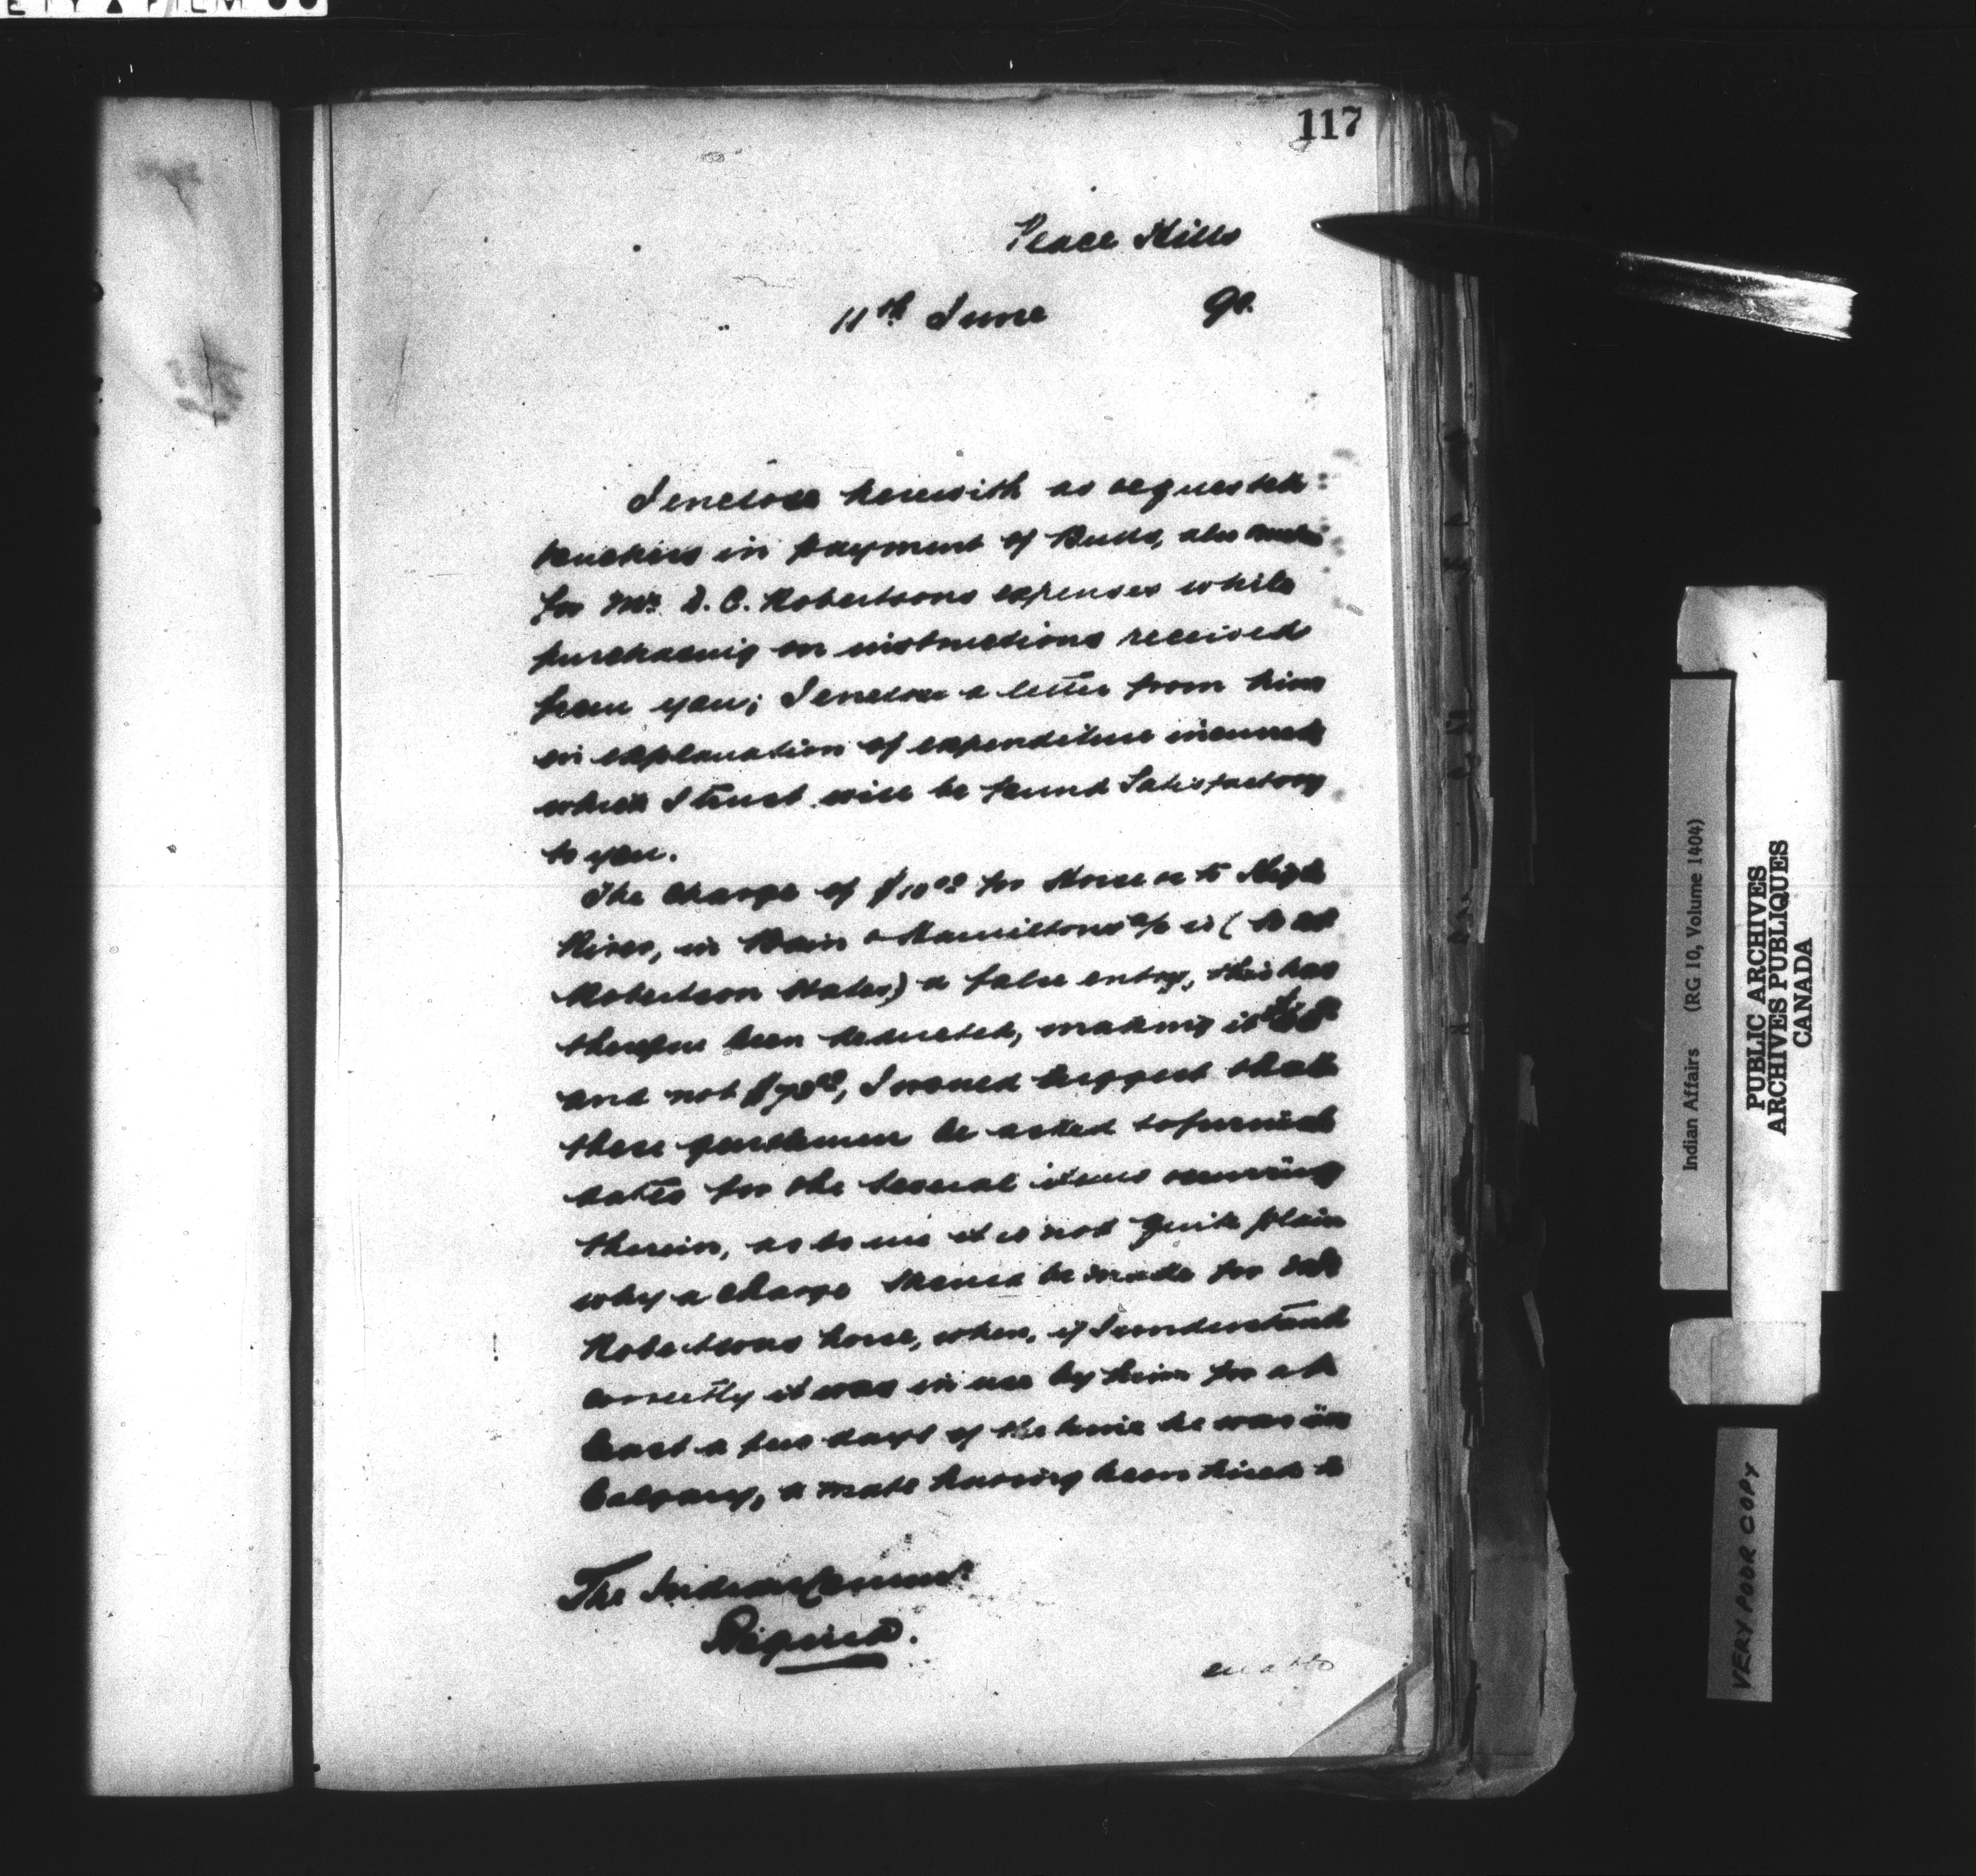 117
Peace Hills
11th June 90.
I enclose herewith as requested
vouchers in payment of Bulls, also
for Mr. D. C. Robertsons expenses while
purchasing on instructions received
from you; I enclose a letter from him
in explanation of expenditure incurred
which I trust will be found satisfactory
to you.
The charge of $10 00 for Horse to High
River, in Bain & Hamiltons a/c is (so
Robertson states) a false entry, this has
therefore been deducted, making it
and not $78 00, I would suggest that
these gentlemen be asked to furnish
dates for the several items occurring
therein, as to me it is not quite plain
why a charge should be made for
Robertsons horse, when, if I understand
correctly it was in use by him for at
least a few days of the time he was in
Calgary, a mate having been hired to
The Indian Commr
Regina.
enable
Indian Affairs (RG 10, Volume 1404)
PUBLIC ARCHIVES
ARCHIVES PUBLIQUES
CANADA
VERY POOR COPY